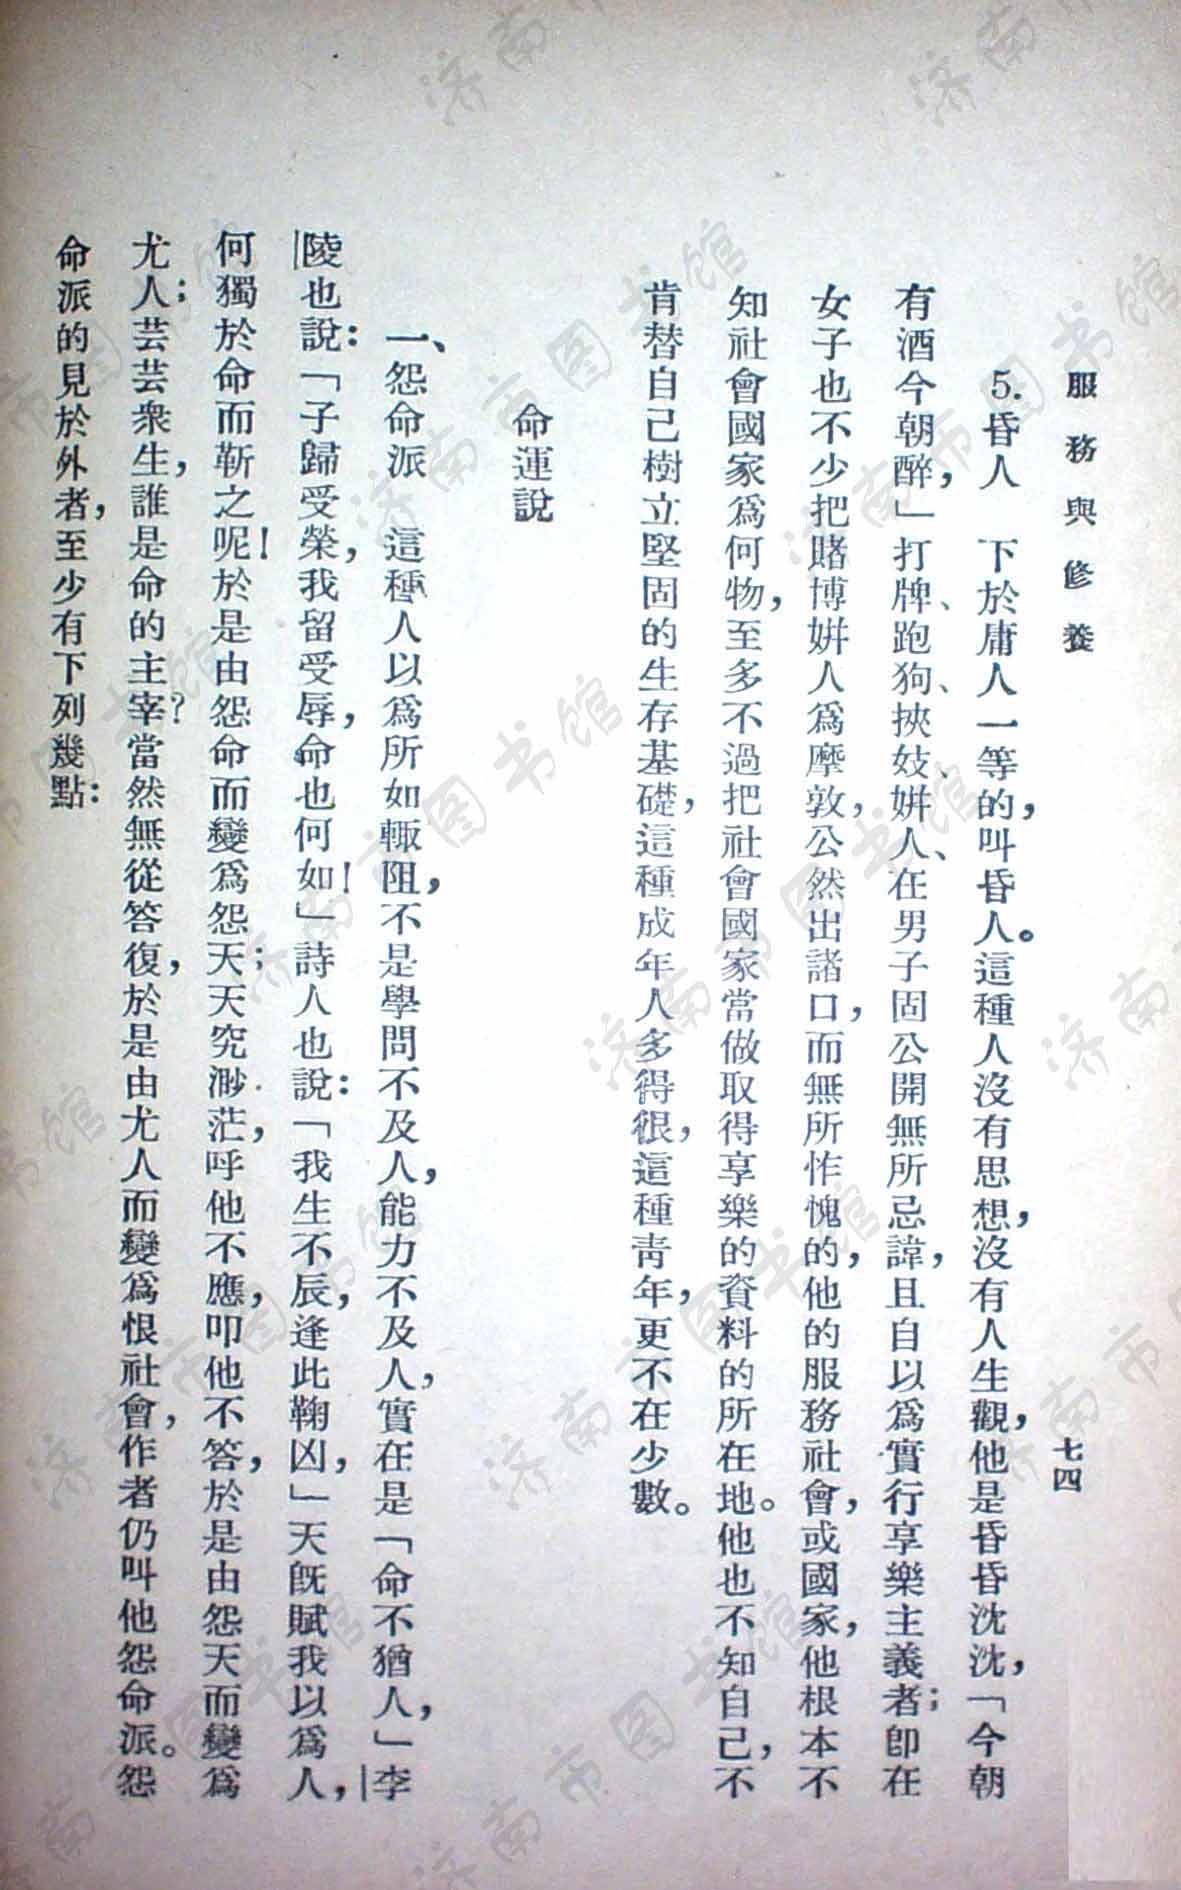 服務與修養
七四
5.昏人　下於庸人一等的，叫昏人。這種人沒有思想，沒有人生觀，他是昏昏沈沈，「今朝
有酒今朝醉，」打牌、跑狗、挾妓、姘人、在男子固公開無所忌諱，且自以爲實行享樂主義者；卽在
女子也不少把賭博姘人爲摩敦，公然出諸口，而無所怍愧的，他的服務社會，或國家，他根本不
知社會國家爲何物，至多不過把社會國家當做取得享樂的資料的所在地。他也不知自己，不
肯替自己樹立堅固的生存基礎，這種成年人多得很，這種靑年，更不在少數。
命運說
一、怨命派　這種人以爲所如輙阻，不是學問不及人，能力不及人，實在是「命不猶人，」李
陵也說：「子歸受榮，我留受辱，命也何如！」詩人也說：「我生不辰，逢此鞠凶，」天旣賦我以爲人，
何獨於命而靳之呢！於是由怨命而變爲怨天；天究渺茫，呼他不應，叩他不答，於是由怨天而變爲
尤人；芸芸衆生，誰是命的主宰？當然無從答復，於是由尤人而變爲恨社會，作者仍叫他怨命派。怨
命派的見於外者，至少有下列幾點：
济南市图书馆